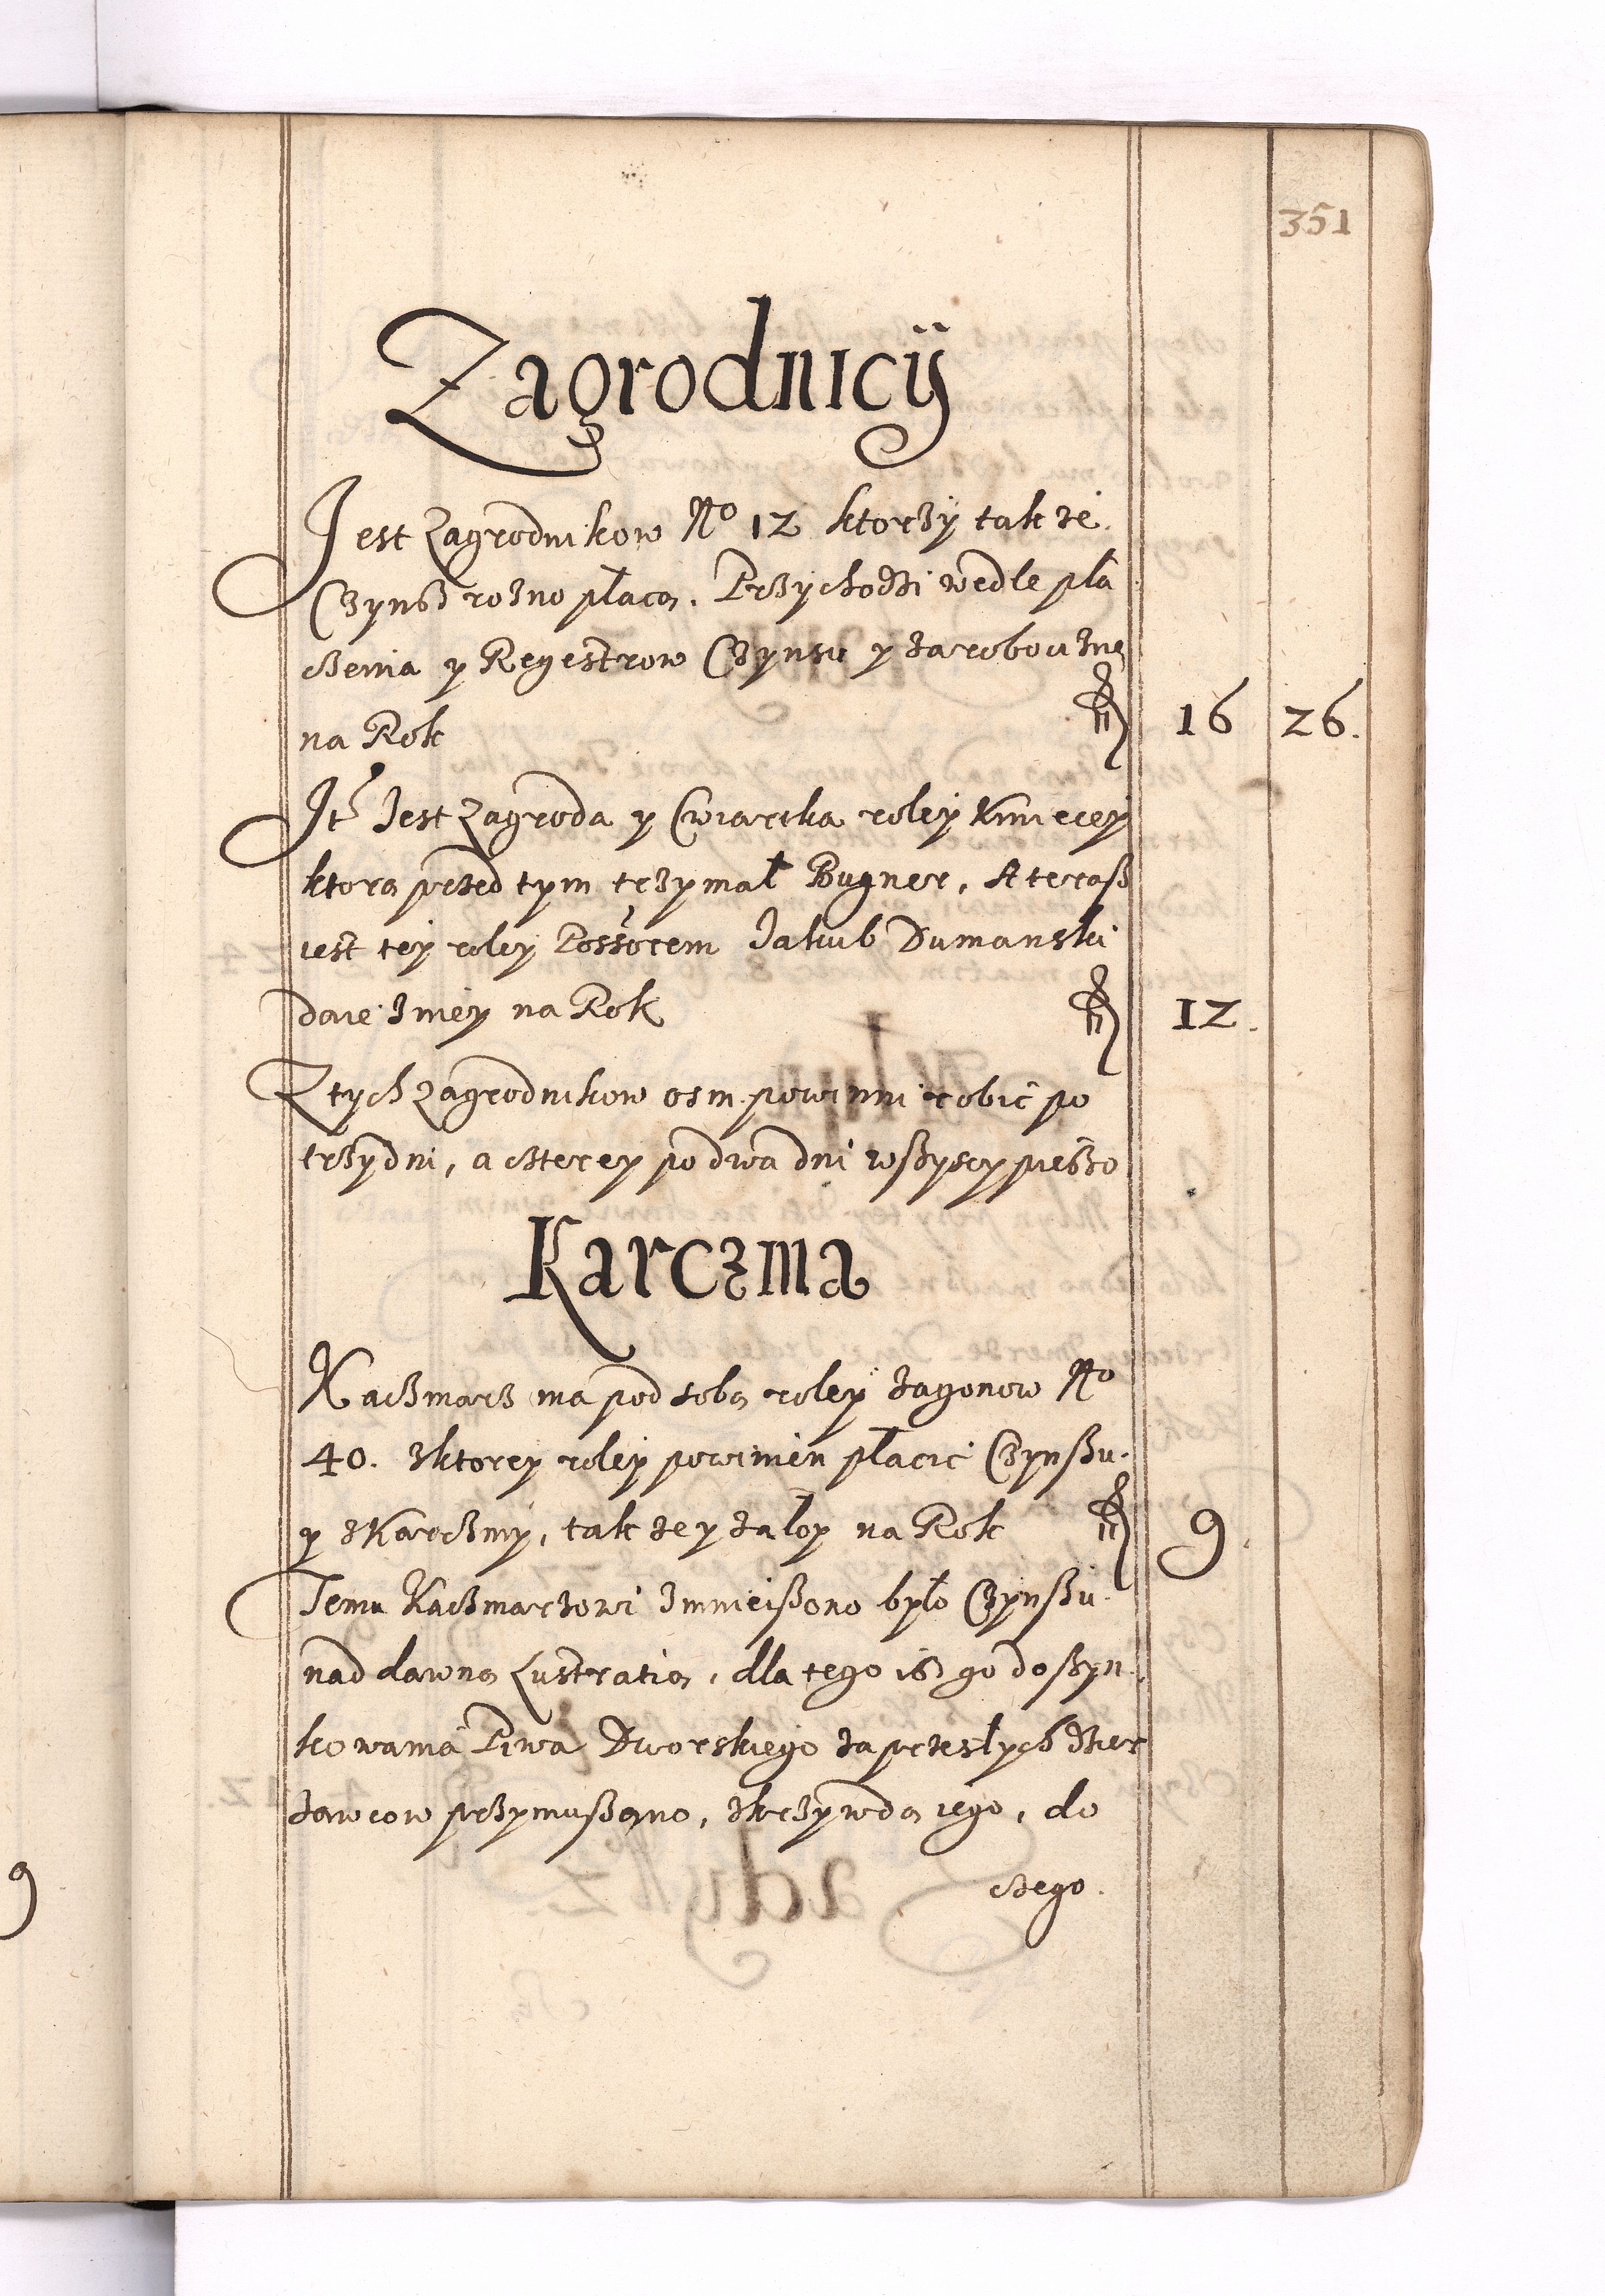 351
Zagrodnicÿ
Jest Zagrodnikow No 12 ktorzÿ takze
Czynsz rozno płacą. Przychodzi wedle pła
czenia y Regestrow Czynsu y zarobocizne
na Rok 16 26.
Jt Jest Zagroda y Cwiartka roleÿ Kmieceÿ
ktorą przed tym trzymał Bugner, A terasz
iest teÿ roleÿ Possorem Jakub Dumanski
daie znieÿ na Rok 12.
Z tych Zagrodnikow osm powinni robic po
trzy dni, a czterey po dwa dni wszyscy pieszo
Karczma
Kaczmarz ma pod sobą roleÿ zagonow No
40. zktorey roleÿ powinien płacic Czynszu
y zKarczmÿ, takze y załoy na Rok 9
Temu Kaczmarzowi zmnieiszono było Czynszu
nad dawną Lustratią, dla tego isz go do szyn
kowania Piwa Dworskiego za przeszłych dzier
zawcow przymuszano, zkrzywdą iego, do
czego.
9